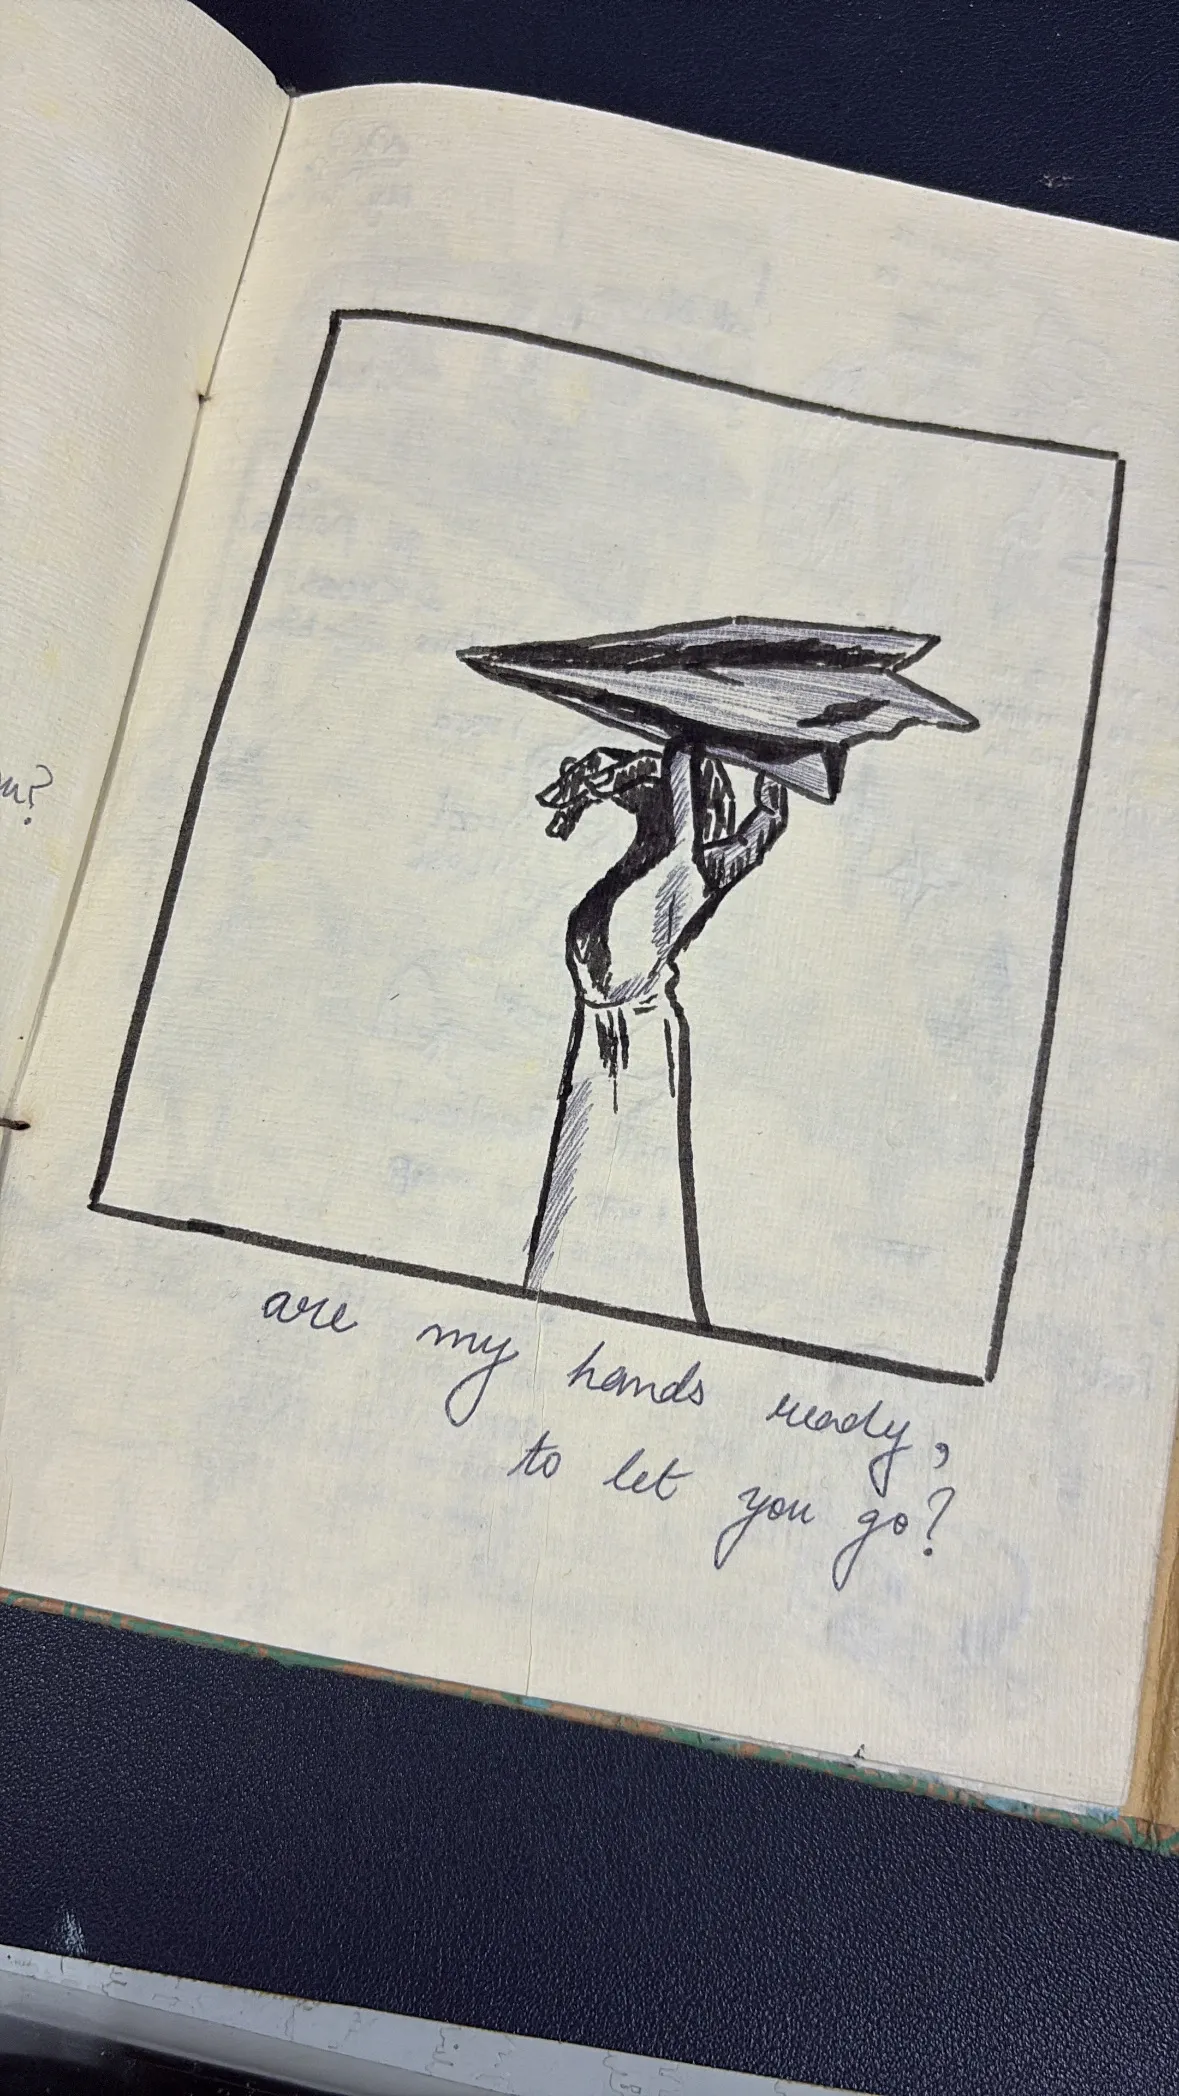 are my hands ready,
to let you go?